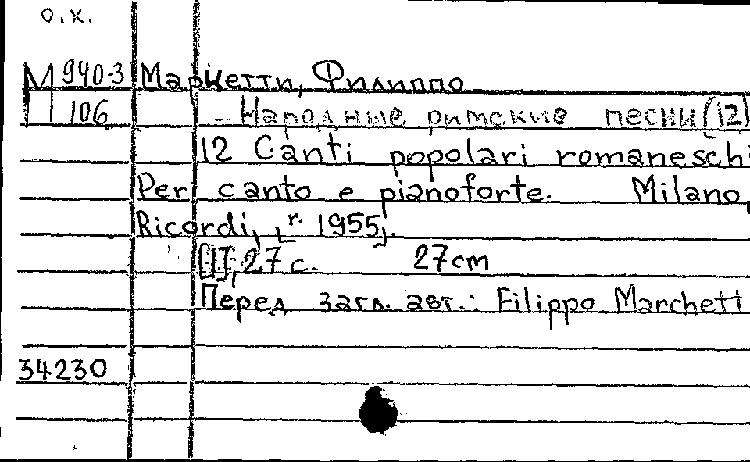 о.к.
М 940-3 Маркетти, Филиппо
106 - Народные римские песни (12)
12 Canti popolari romaneschi
Per canto e pianoforte. Milano,
Ricordi, [г. 1955].
[II], 27 с. 27 cm
Перед загл. авт.: Filippo Marchetti
34230